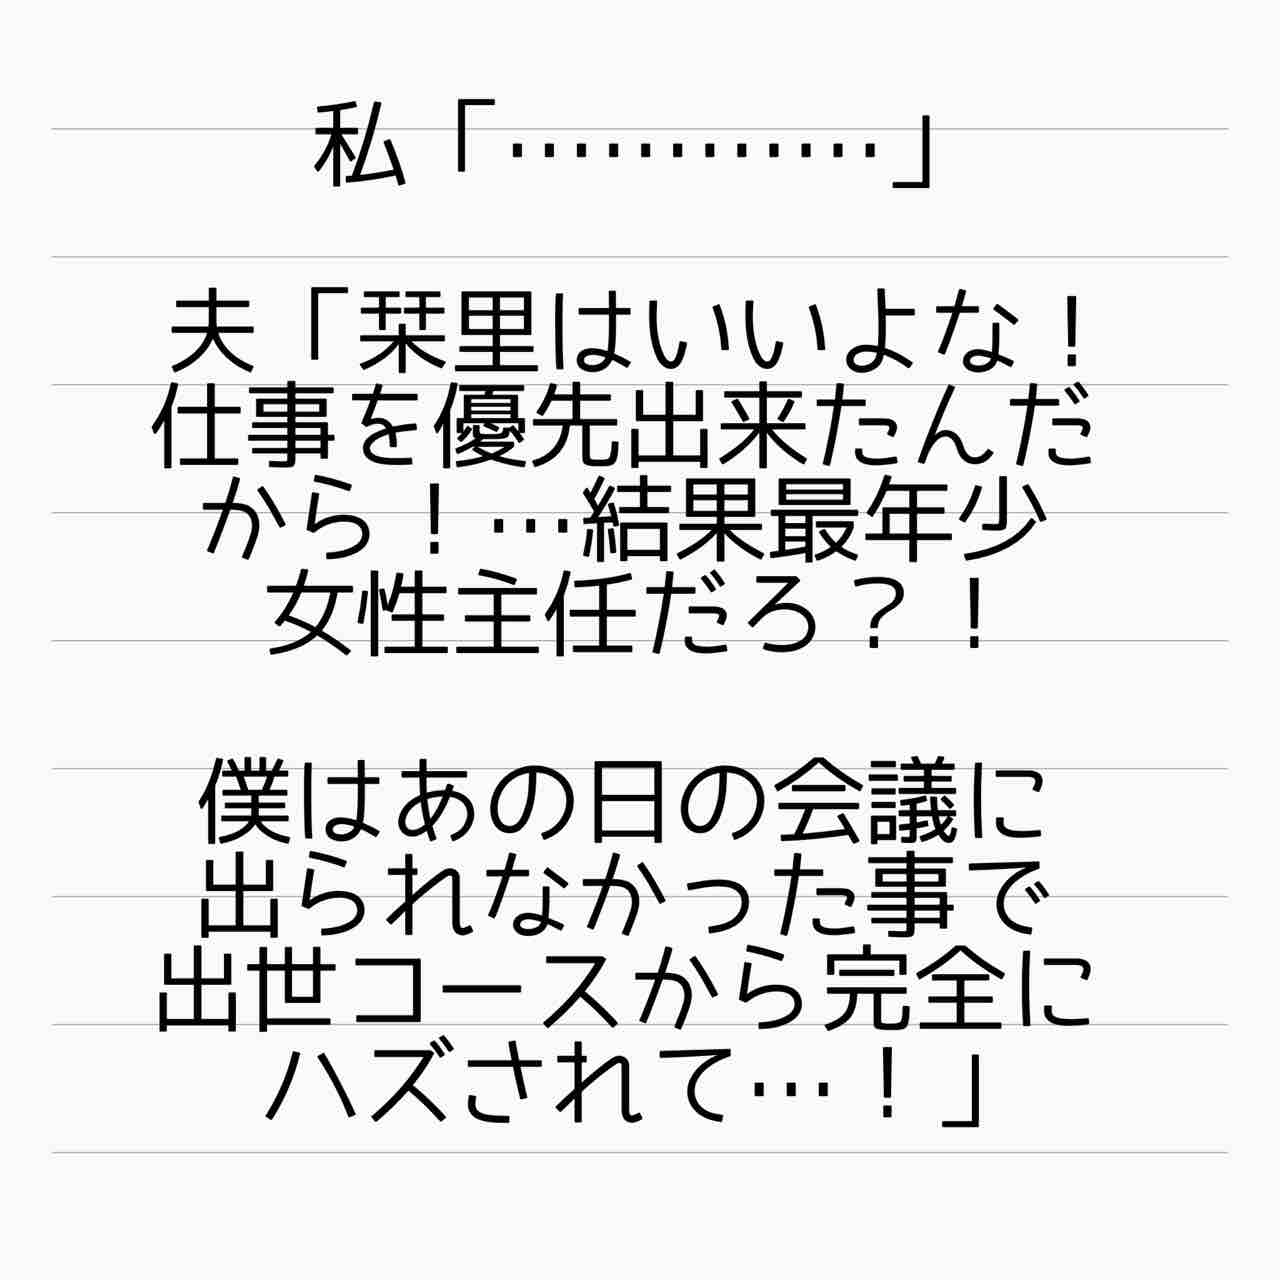 私「…………」
夫「栞里はいいよな！
仕事を優先出来たんだ
から！…結果最年少
女性主任だろ？！
僕はあの日の会議に
出られなかった事で
出世コースから完全に
ハズされて…！」